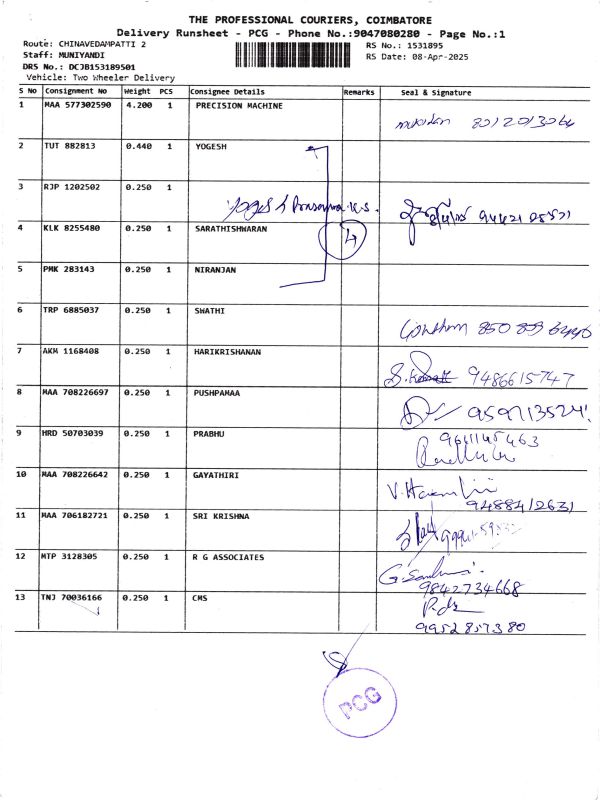 THE PROFESSIONAL COURIERS, COIMBATORE
Delivery Runsheet - PCG - Phone No.:9047080280 - Page No.:1
Route: CHINAVEDAMPATTI 2
Staff: MUNIYANDI
DRS No.: DCJB153189501
Vehicle: Two Wheeler Delivery
RS No.: 1531895
RS Date: 08-Apr-2025
S No Consignment No Weight PCS Consignee Details Remarks Seal & Signature
1 MAA 577302590 4.200 1 PRECISION MACHINE
2 TUT 882813 0.440 1 YOGESH
3 RJP 1202502 0.250 1
4 KLK 8255480 0.250 1 SARATHISHWARAN 4
5 PMK 283143 0.250 1 NIRANJAN
6 TRP 6885037 0.250 1 SWATHI
7 AKM 1168408 0.250 1 HARIKRISHANAN 9486615747
8 MAA 708226697 0.250 1 PUSHPAMAA
9 HRD 50703039 0.250 1 PRABHU 9611145463
10 MAA 708226642 0.250 1 GAYATHIRI 9488412631
11 MAA 706182721 0.250 1 SRI KRISHNA
12 MTP 3128305 0.250 1 R G ASSOCIATES 9842734668
13 TNJ 70036166 0.250 1 CMS 9952857380
PCG